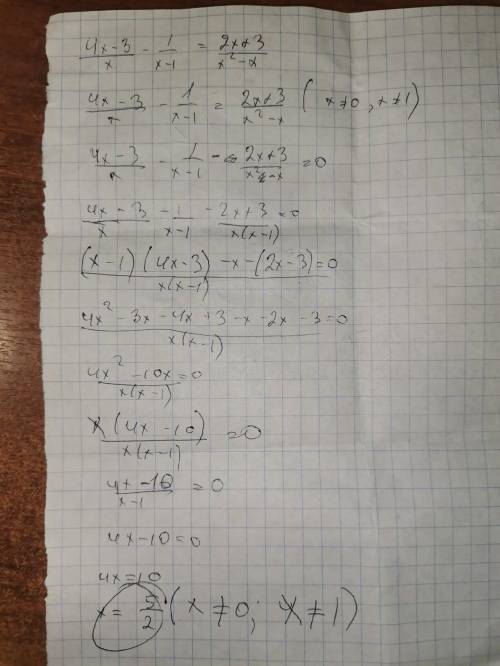 (4x-3)/x - 1/(x-1) = (2x+3)/(x²-x)
(4x-3)/x - 1/(x-1) = (2x+3)/(x²-x) ( x≠0, x≠1)
(4x-3)/x - 1/(x-1) - (2x+3)/(x²-x) = 0
(4x-3)/x - 1/(x-1) - (2x+3)/(x(x-1)) = 0
((x-1)(4x-3) - x - (2x-3))/(x(x-1)) = 0
(4x² - 3x - 4x + 3 - x - 2x - 3)/(x(x-1)) = 0
(4x² - 10x)/(x(x-1)) = 0
(x(4x-10))/(x(x-1)) = 0
(4x-10)/(x-1) = 0
4x-10=0
4x=10
x= 5/2 (x≠0; x≠1)